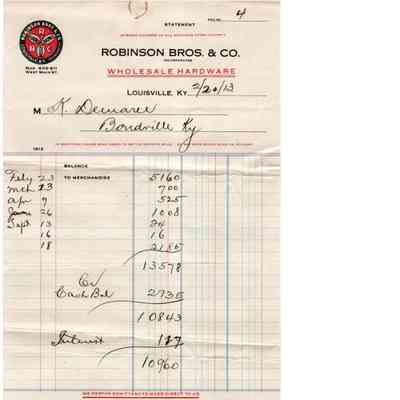 STATEMENT
FOLIO 4
ROBINSON BROS. & CO.
INCORPORATED
WHOLESALE HARDWARE
WEST MAIN ST.
LOUISVILLE, KY. 2/20/13
M K. Demaree
Bondville Ky
1912 BALANCE
Feby 23 TO MERCHANDISE 5160
Mch 23 700
Apr 9 525
26 1008
Sept 13 24
16 16
18 2185
13578
Cr
Cash Bal 2735
10843
Interest 117
10960
WE PREFER REMITTANCES MADE DIRECT TO US